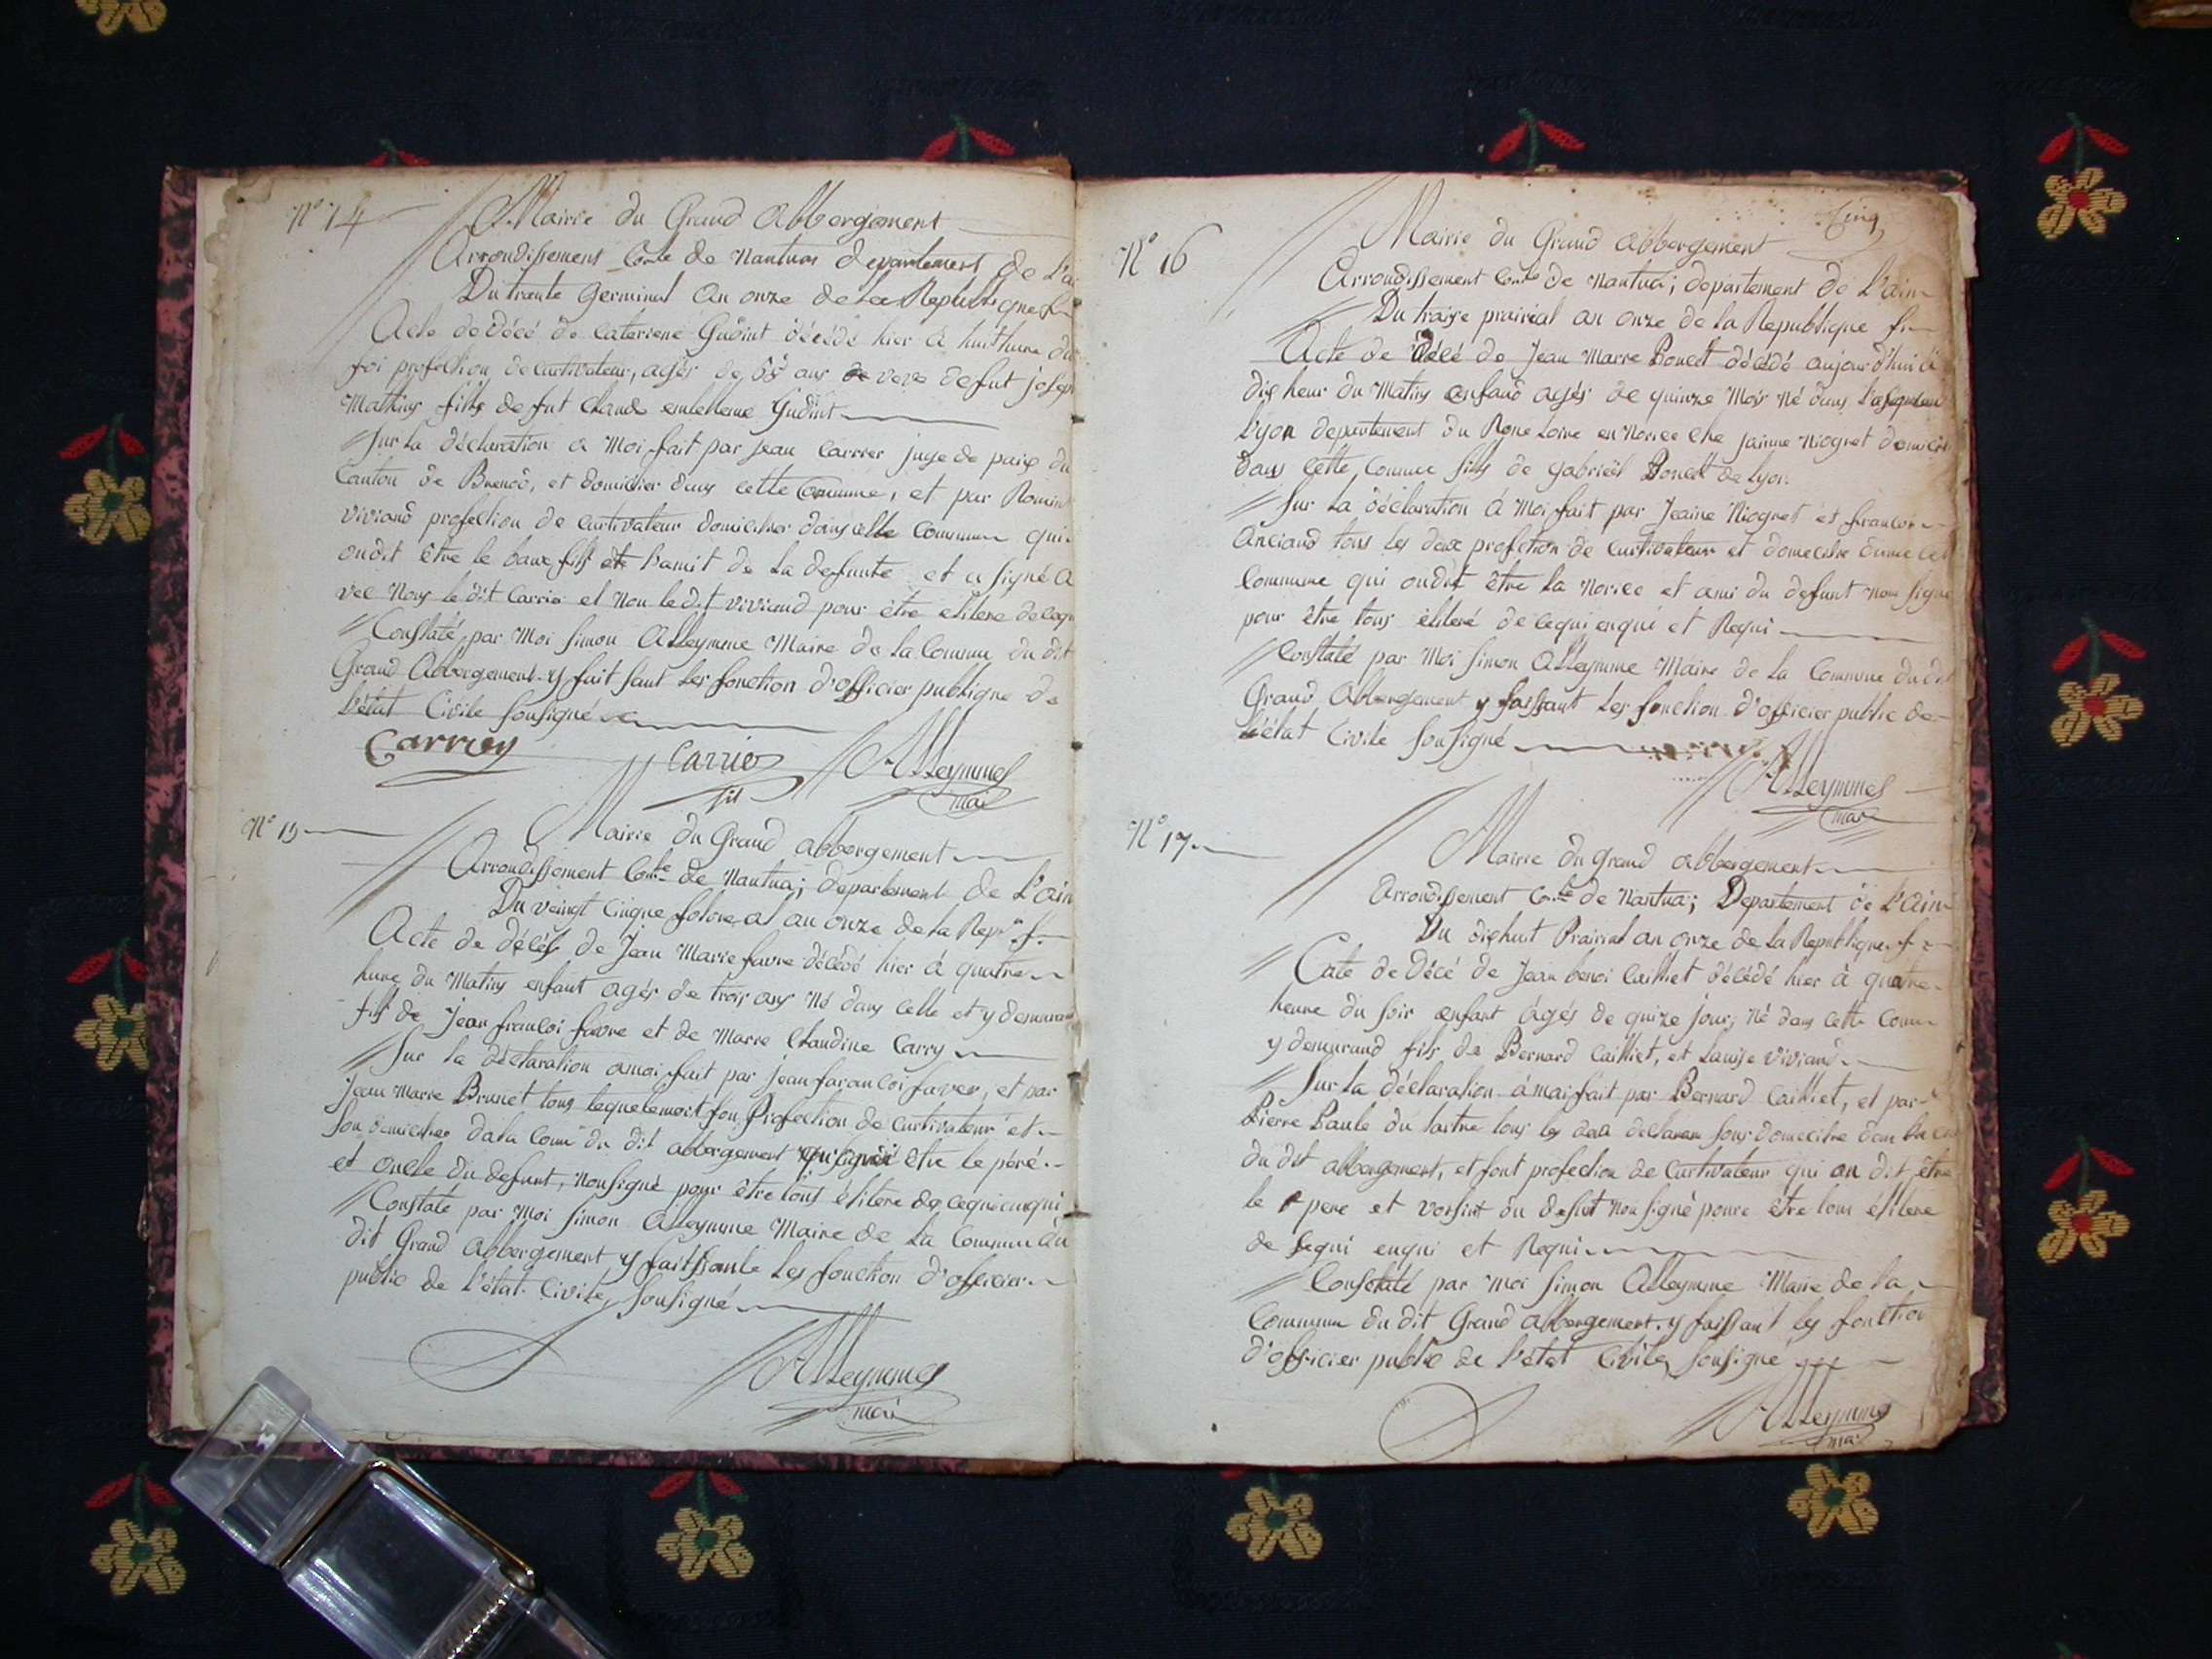 N° 14
Mairie du Grand abbergement
Arrondissement Con.le de Nantua departement de L'ai
Du trante Germinal an onze de la Republique
Acte de décé de Cateriene Gudint décédé hier à huit hure du
soi profection de Curtivateur, agés de ans veve defut joseph
Mathius fille defut Claude Gudint
Sur la déclaration a Moi fait par Jean Carrier juge de paix du
Canton de Brenod, et domicilier dans cette Commune, et par Romin
viviand profection de Curtivateur domicilier dans cette commune qui
ondit être le baux fils et lamit de La defunte et a signé a
vec Nous le dit Carrie et non ledit viviand pour être elitere de cequ
Constaté par Moi Simon Alleymme Maire de La Commu du dit
Grand Abbergement y fait sant Les fonction d'officier publique de
L'état Civile sousigné
Carrier Carrier fils Alleymme mai
N° 15
Mairie du Grand abbergement
Arrondissement Con.le de Nantua; departement de L'ain
Du veingt cinque floreal an onze de la Rep. f.
Acte de décés de Jean Marie favre décédé hier à quatre
hure du Matins enfant agés de trois ans Né dans cette et y demurand
fils de Jean francoi favre et de Marre Claudine Carry
Sur la déclaration amoi fait par jean farancoi faver, et par
Jean Marie Brunet tous lequelemoit son Profection de Curtivateur et
son domicilier dala Com du dit abbergement être le péré
et oncle du defunt, Nonsigné pour être tous élitere de cequi enqui
Constaté par Moi Simon Alleymme Maire de La Commu du
dit Grand abbergement y faitssante Les fonction d'officier
public de L'état Civile, sousigné
Alleymme
mai
Cinq
N° 16
Mairie du Grand abbergement
Arrondissement Con.le de Nantua; departement de L'ain
Du traise prairial an onze de la Republique fr
Acte de décé de Jean Marre Boncet décédé aujourd'hui à
dix heur du Matins enfand agés de quinze Mois Né dans
Lyon departement du Rone Loire en Norice che jainne Niogret
dans cette Comune fils de gabrieel Boncet de Lyon
Sur La déclaration à Moi fait par Jeaine Niogret et francois
Anciand tous les deux profection de Curtivateur et domecilie
Commune qui ondit être La Norice et ami du defunt non signé
pour être tous èliteré de cequi enqui et Requi
Constaté par Moi Simon Alleymme Maire de La Commune du dit
Grand Abbergement y faissant Les fonction d'officier public de
L'état Civile sousigné
Alleymme
mai
N° 17
Mairie du Grand abbergement
Arrondissement Con.le de Nantua; Departement de L'ain
Du dixhuit Prairial an onze de La Republique f
Cate de Décé de Jean benoi Cailliet décédé hier à quatre
heure du soir enfant agés de quize jour; né dans cette Comu
y demurand fils de Bernard Cailliet, et Lauise Viviand
Sur La déclaration à mai fait par Bernard Cailliet, et par
Pierre Paule du tartre tous les deux declaram sous domecilie dans
du dit abbergement, et font profection de Curtivateur qui on dit être
le pere et vorsint du defut Non signé poure être tous élitere
de sequi enqui et Requi
Constaté par Moi Simon Alleymme Maire de La
Commun du dit Grand abbergement y faissant les fonction
d'officier public de L'état Civile, sousigné
Alleymme
mai